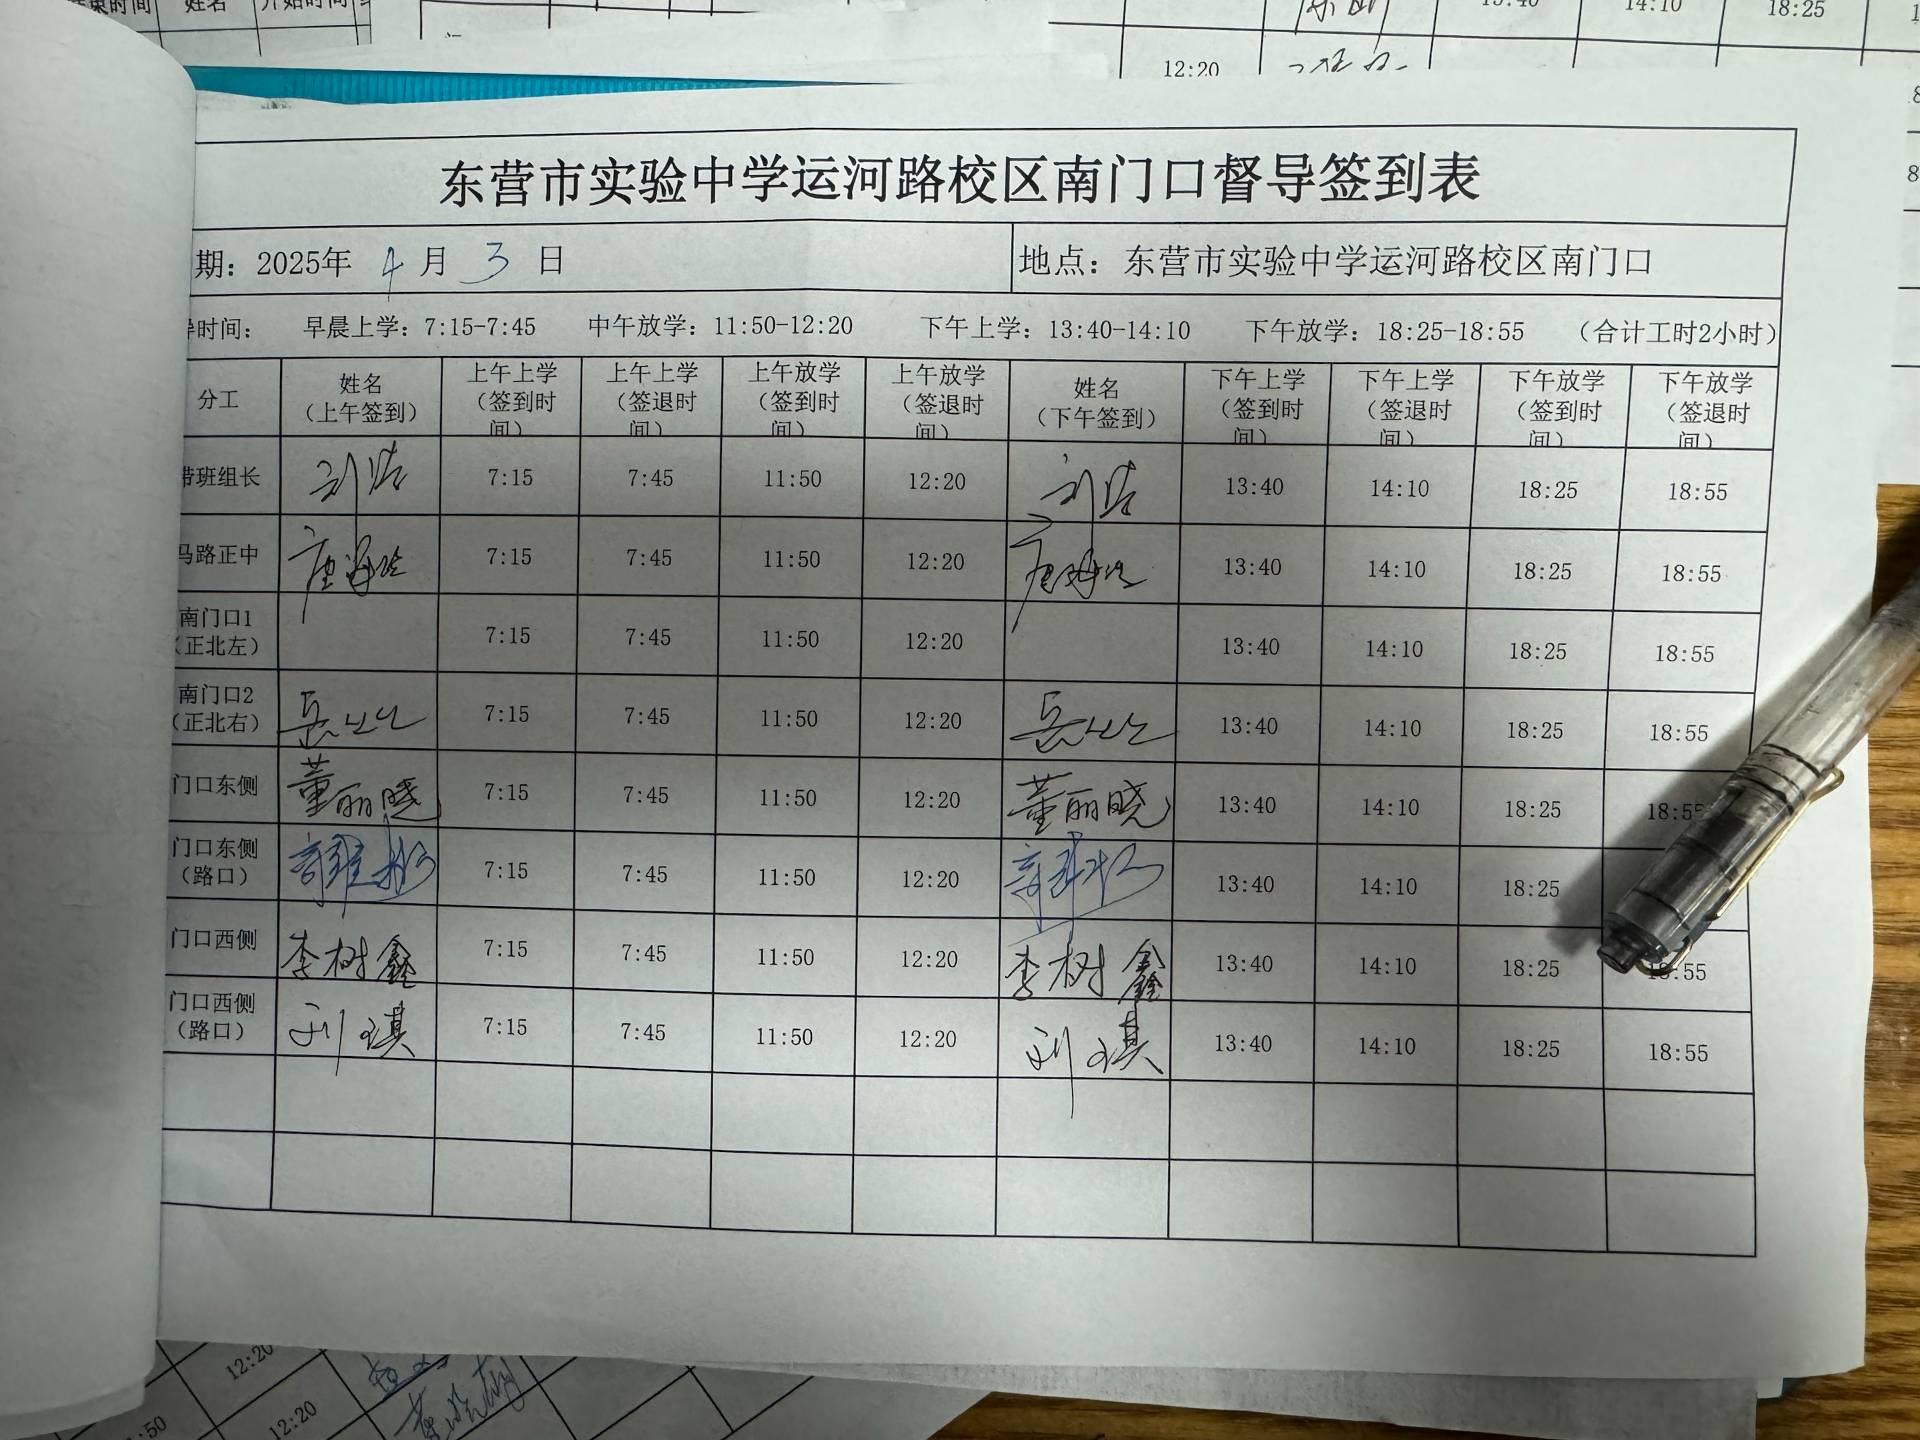 东营市实验中学运河路校区南门口督导签到表
期：2025年 4 月 3 日 地点：东营市实验中学运河路校区南门口
时间： 早晨上学：7:15-7:45 中午放学：11:50-12:20 下午上学：13:40-14:10 下午放学：18:25-18:55 （合计工时2小时）
分工 姓名（上午签到） 上午上学（签到时间） 上午上学（签退时间） 上午放学（签到时间） 上午放学（签退时间） 姓名（下午签到） 下午上学（签到时间） 下午上学（签退时间） 下午放学（签到时间） 下午放学（签退时间）
带班组长 刘浩 7:15 7:45 11:50 12:20 刘浩 13:40 14:10 18:25 18:55
马路正中 7:15 7:45 11:50 12:20 13:40 14:10 18:25 18:55
南门口1（正北左） 7:15 7:45 11:50 12:20 13:40 14:10 18:25 18:55
南门口2（正北右） 7:15 7:45 11:50 12:20 13:40 14:10 18:25 18:55
门口东侧 董丽晓 7:15 7:45 11:50 12:20 董丽晓 13:40 14:10 18:25 18:55
门口东侧（路口） 7:15 7:45 11:50 12:20 13:40 14:10 18:25
门口西侧 李树鑫 7:15 7:45 11:50 12:20 李树鑫 13:40 14:10 18:25 18:55
门口西侧（路口） 刘琪 7:15 7:45 11:50 12:20 刘琪 13:40 14:10 18:25 18:55